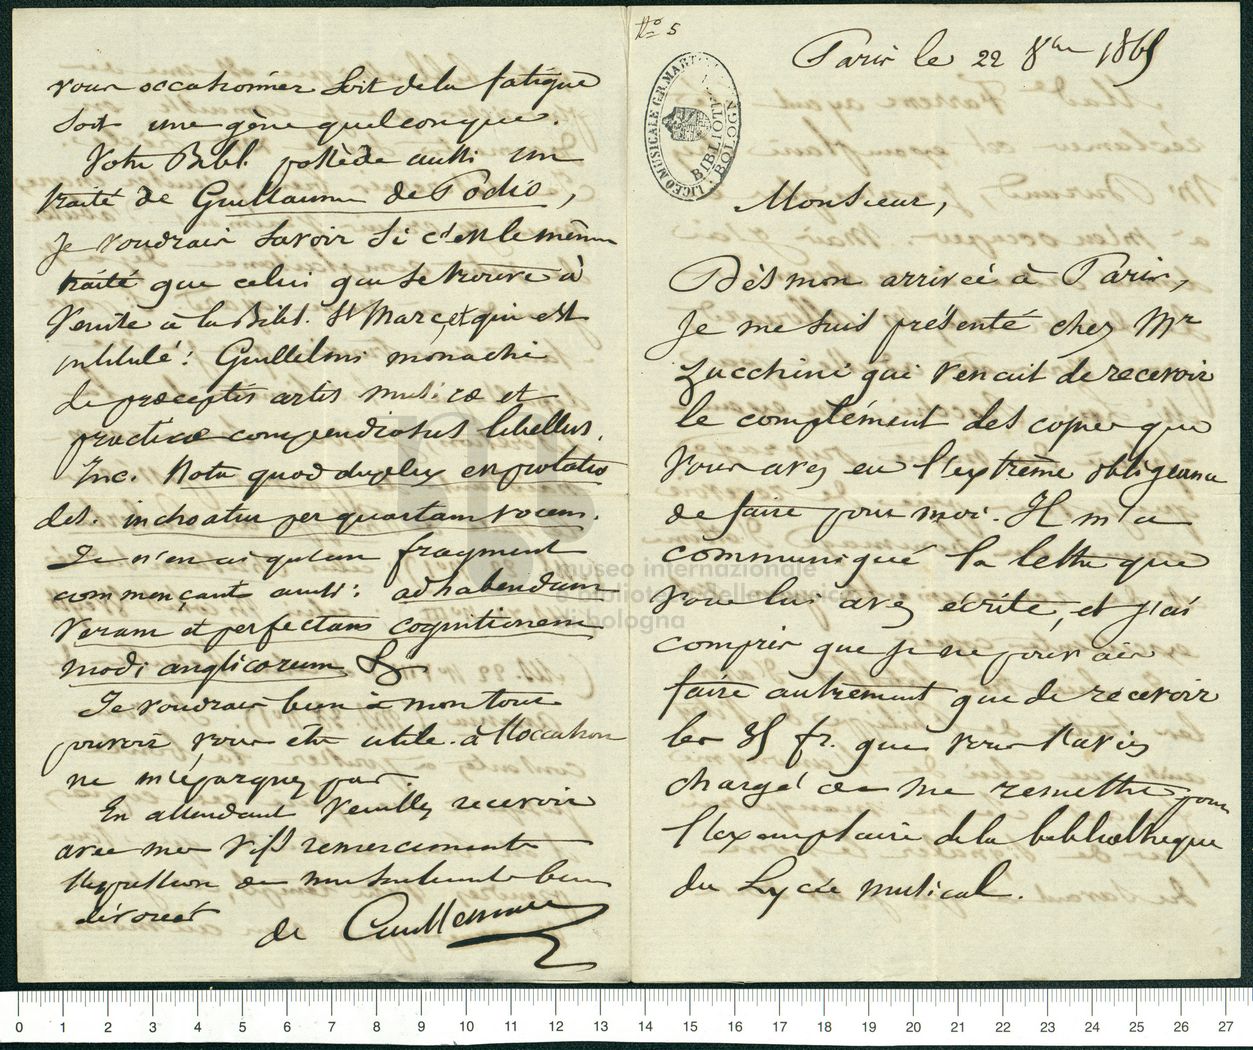 No 5
Paris le 22 8bre 1865
LICEO MUSICALE G.B. MARTINI
BIBLIOTECA
BOLOGNA
Monsieur,
Dès mon arrivée à Paris,
je me suis présenté chez Mr
Zucchini qui venait de recevoir
le complément des copies que
vous avez eu l'extrême obligeance
de faire pour moi. Il m'a
communiqué la lettre que
vous lui avez écrite, et j'ai
compris que je ne pouvais
faire autrement que de recevoir
les 35 fr. que vous l'aviez
chargé de me remettre pour
l'exemplaire de la bibliothèque
du Lycée musical.
vous occasionner soit de la fatigue
soit une gêne quelconque.
Votre Bibl. possède aussi un
traité de Guillaume de Podio,
je voudrais savoir si c'est le même
traité que celui qui se trouve à
Venise à la Bibl. St Marc, et qui est
intitulé: Guillelmi monachi
de preceptis artis musicæ et
practicæ compendiosus libellus.
Inc. Nota quod duplex en prolatio
det. inchoatur per quartam vocem.
Je n'en ai qu'un fragment
commençant ainsi: ad habendam
veram et perfectam cognitionem
modi anglicorum &
Je voudrais bien à mon tour
pouvoir vous être utile. à l'occasion
ne m'épargnez pas
En attendant veuillez recevoir
avec mes vifs remerciments
l'expression de mes sentiments bien
dévoués
de Coussemaker
museo internazionale
e biblioteca della musica
di bologna
0 1 2 3 4 5 6 7 8 9 10 11 12 13 14 15 16 17 18 19 20 21 22 23 24 25 26 27